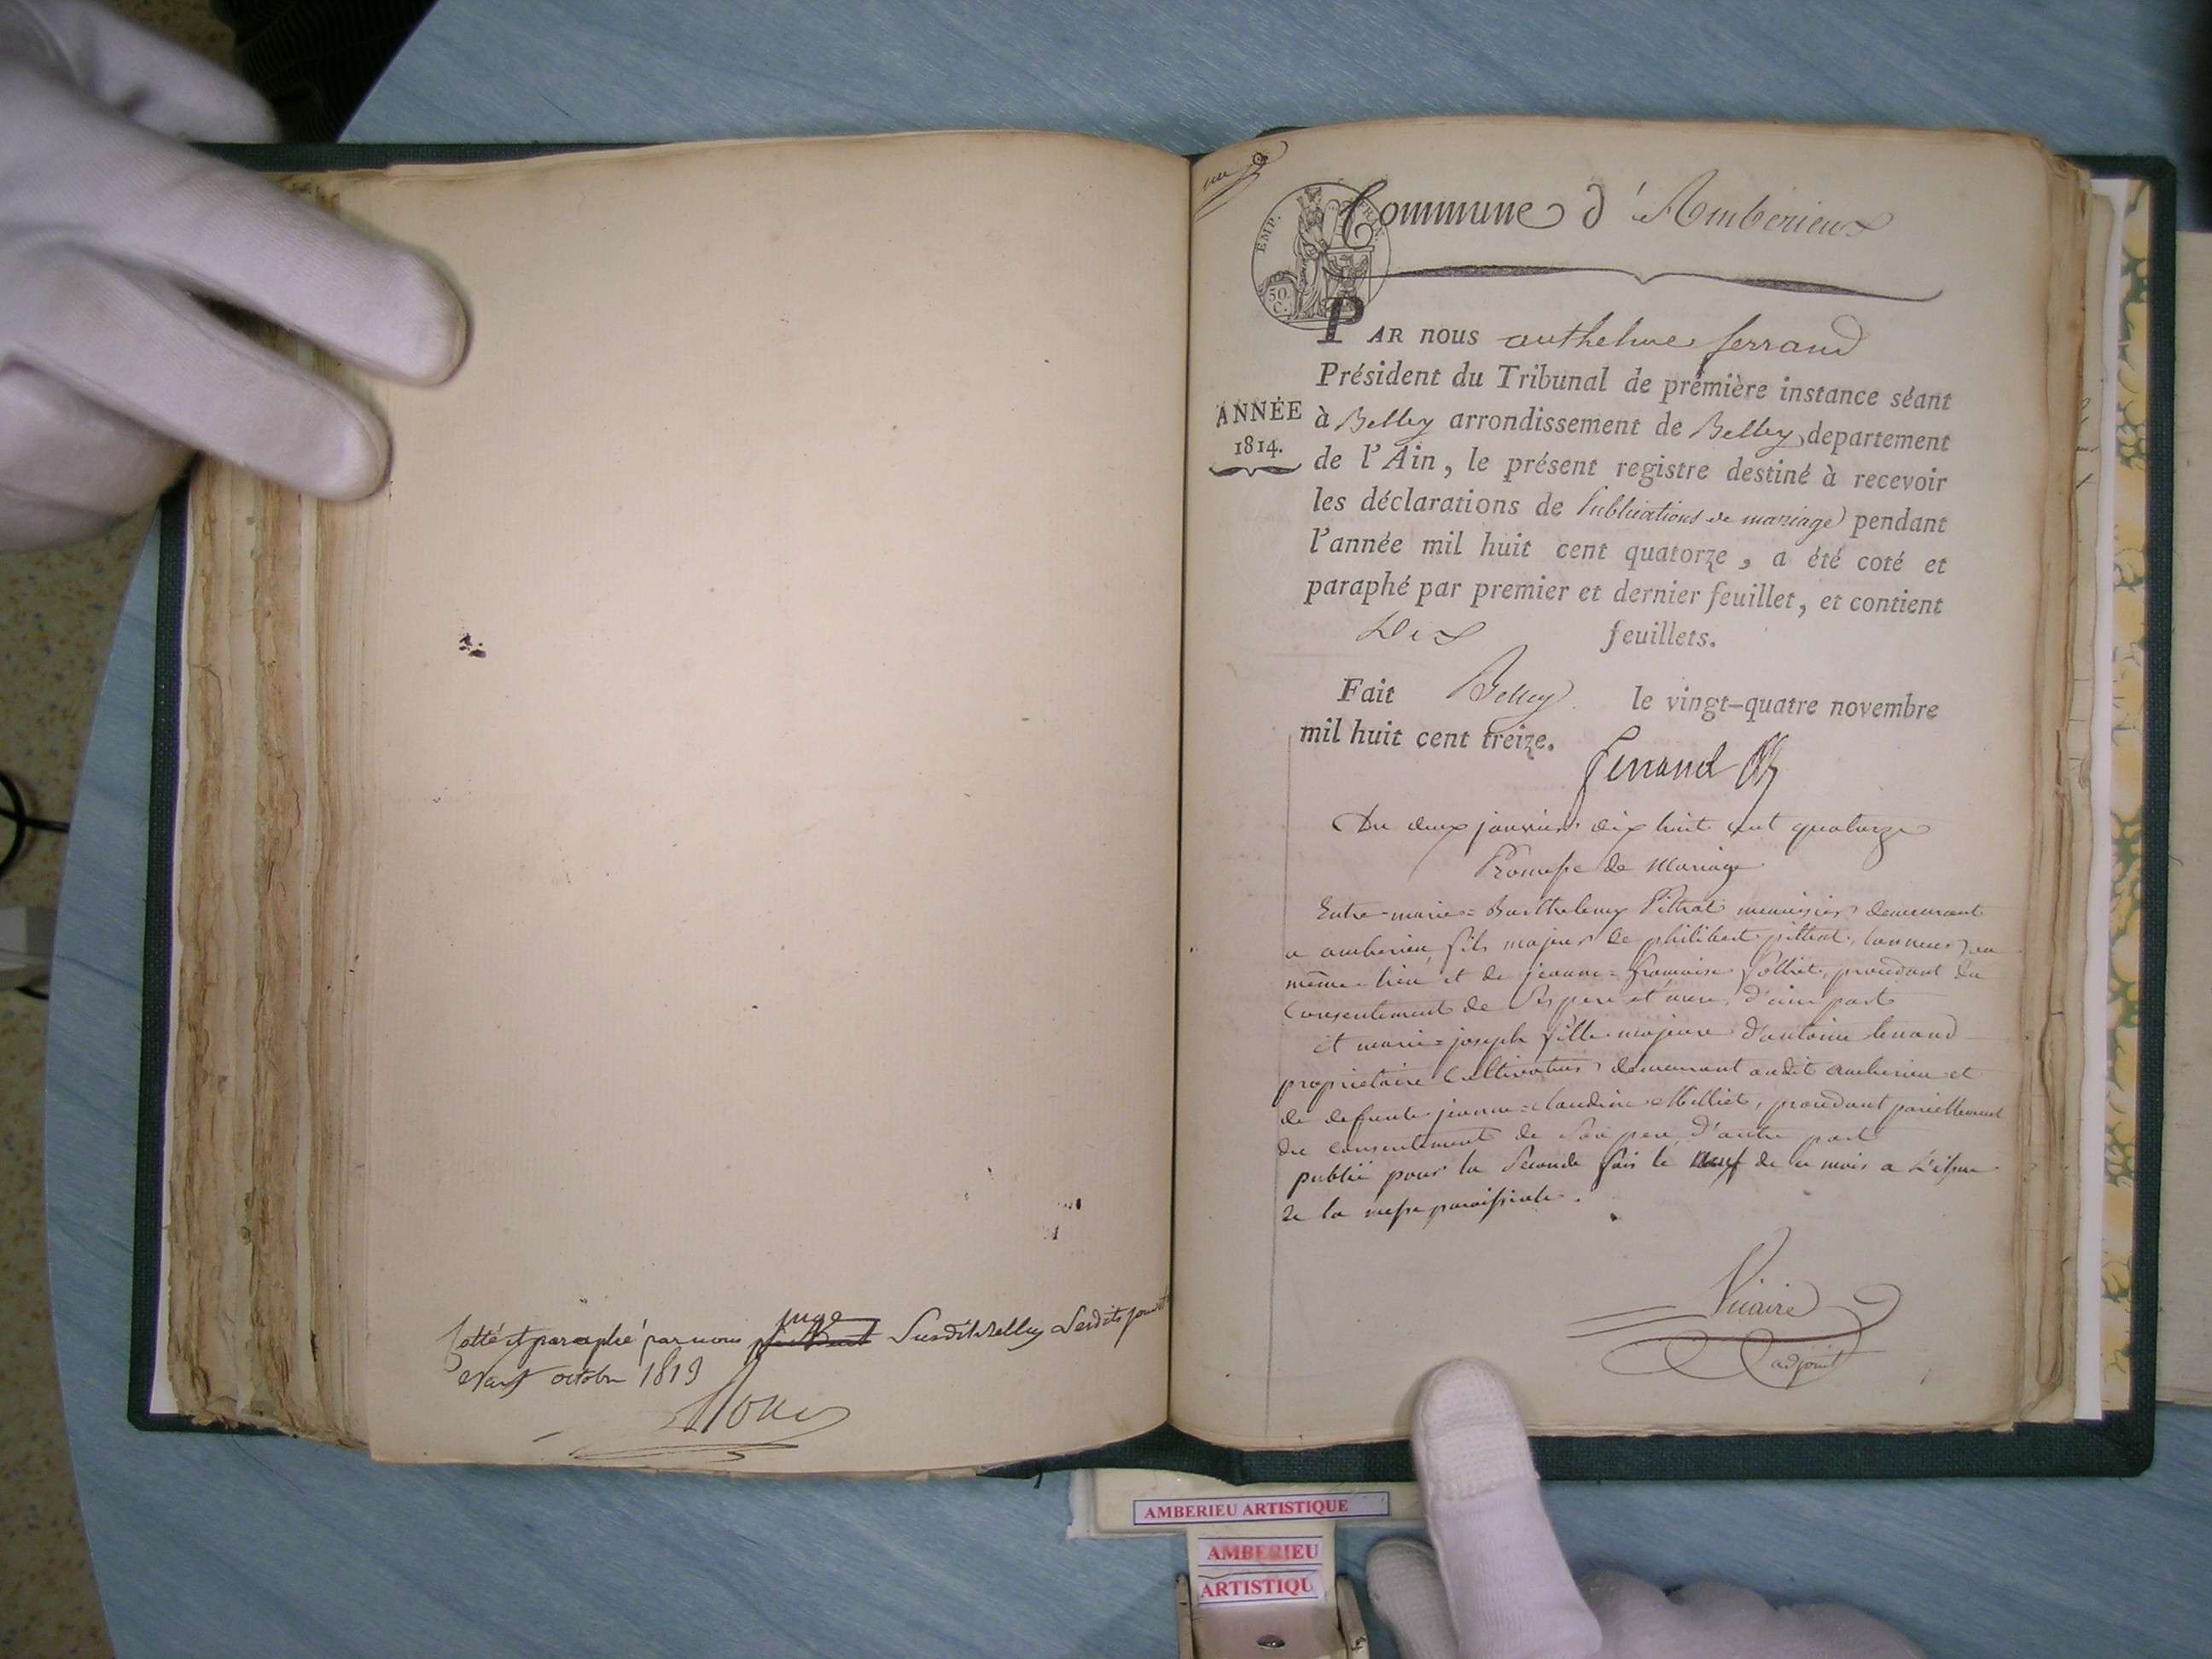 Cotté et paraphé par nous juge Susdit Belley Lesdits jour et
Neuf octobre 1813
un
EMP. FRAN.
50 C.
Commune d'Amberieux
PAR nous anthelme ferrand
Président du Tribunal de prémière instance séant
ANNÉE
1814.
à Belley arrondissement de Belley departement
de l'Ain, le présent registre destiné à recevoir
les déclarations de Publications de mariage pendant
l'année mil huit cent quatorze, a été coté et
paraphé par premier et dernier feuillet, et contient
Dix feuillets.
Fait Belley le vingt-quatre novembre
mil huit cent treize.
ferrand
Du deux janvier dix huit cent quatorze
Promesse de mariage
Entre marie=Barthelemy Pittrat menuisier demeurant
a amberieu, fils majeur de philibert pittrat, tanneur au
même lieu et de jeanne=francoise folliet, procédant du
Consentement de Ses pere et mere, d'une part
et marie=joseph fille majeure d'antoine tenand
proprietaire Cultivateur demeurant audit amberieu et
de defunte jeanne=claudine Milliet, procédant pareillement
du consentement de Son pere d'autre part
publié pour la Seconde fois le neuf de ce mois a L'issue
de la messe paroissiale.
Vicaire
adjoint
AMBERIEU ARTISTIQUE
AMBERIEU
ARTISTIQU